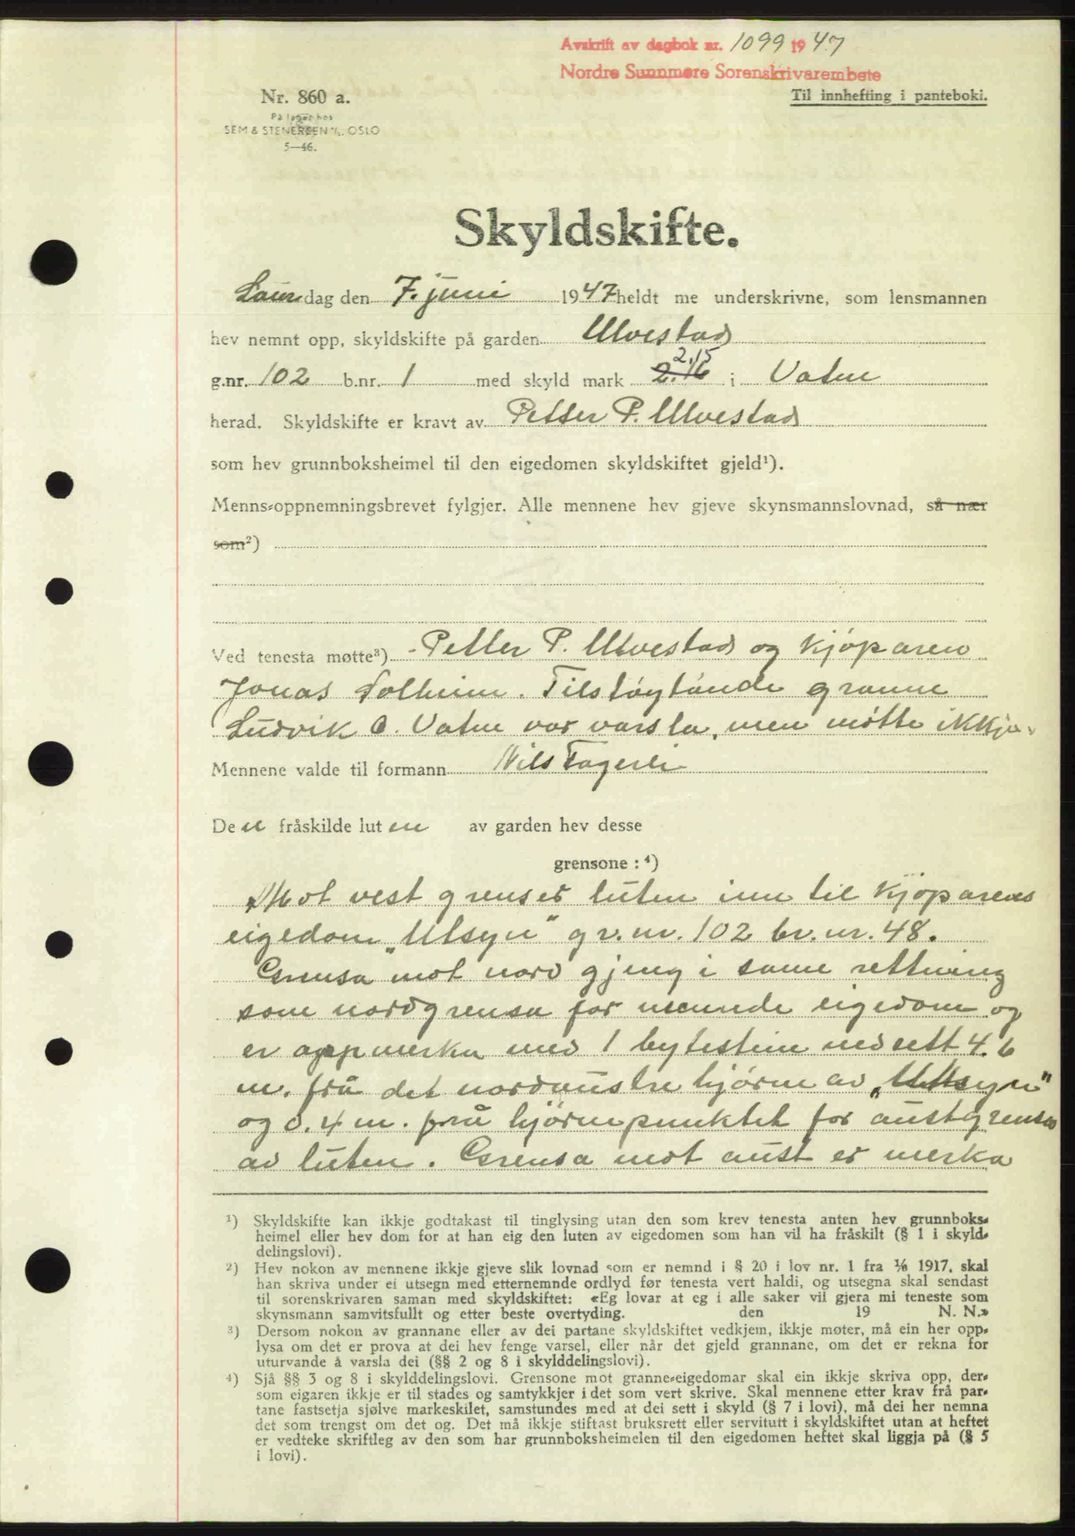 Avskrift av dagbok nr. 1099 1947
Nordre Sunnmøre Sorenskrivarembete
Nr. 860 a.
Til innhefting i panteboki.
På lager hos
SEM & STENERSEN A/S, OSLO
5—46.
Skyldskifte.
Laurdag den 7. juni 1947 heldt me underskrivne, som lensmannen
hev nemnt opp, skyldskifte på garden Ulvestad
2.15
g.nr. 102 b.nr. 1 med skyld mark 2.16 i Vatne
herad. Skyldskifte er kravt av Petter P. Ulvestad
som hev grunnboksheimel til den eigedomen skyldskiftet gjeld¹).
Menns-oppnemningsbrevet fylgjer. Alle mennene hev gjeve skynsmannslovnad, så nær
som²)
Ved tenesta møtte³) Petter P. Ulvestad og kjøparen
Jonas Solheim. Tilstøytande granne
Ludvik C. Vatne var varsla, men møtte ikkje.
Mennene valde til formann Nils Fagerli
Den fråskilde luten av garden hev desse
grensone : ⁴)
Mot vest grenser luten inn til kjøparens
eigedom „Utsyn" gr. nr. 102 br. nr. 48.
Grensa mot nord gjeng i same rettning
som nordgrensa for nemnde eigedom og
er oppmerka med 1 bytestein nedsett 4.6
m. frå det nordaustre hjørne av „Utsyn"
og 0.4 m. frå hjørnepunktet for austgrensa
av luten. Grensa mot aust er merka
¹) Skyldskifte kan ikkje godtakast til tinglysing utan den som krev tenesta anten hev grunnboks-
heimel eller hev dom for at han eig den luten av eigedomen som han vil ha fråskilt (§ 1 i skyld-
delingslovi).
²) Hev nokon av mennene ikkje gjeve slik lovnad som er nemnd i § 20 i lov nr. 1 fra 1/6 1917, skal
han skriva under ei utsegn med etternemnde ordlyd før tenesta vert haldi, og utsegna skal sendast
til sorenskrivaren saman med skyldskiftet: «Eg lovar at eg i alle saker vil gjera mi teneste som
skynsmann samvitsfullt og etter beste overtyding. den 19 N. N.»
³) Dersom nokon av grannane eller av dei partane skyldskiftet vedkjem, ikkje møter, må ein her opp-
lysa om det er prova at dei hev fenge varsel, eller når det gjeld grannane, om det er rekna for
uturvande å varsla dei (§§ 2 og 8 i skylddelingslovi).
⁴) Sjå §§ 3 og 8 i skylddelingslovi. Grensone mot granne-eigedomar skal ein ikkje skriva opp, der-
som eigaren ikkje er til stades og samtykkjer i det som vert skrive. Skal mennene etter krav frå par-
tane fastsetja sjølve markeskilet, samstundes med at dei sett i skyld (§ 7 i lovi), må dei her nemna
det som trengst om det og. Det må ikkje stiftast bruksrett eller servitutt i skyldskiftet utan at heftet
er vedteke skriftleg av den som har grunnboksheimelen til den eigedomen heftet skal liggja på (§ 5
i lovi).